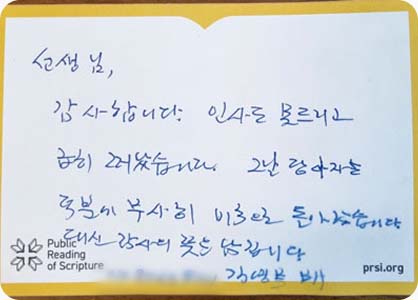 선생님,
감사합니다. 인사도 못드리고
급히 떠났습니다. 그날 당사자는
덕분에 무사히 미국으로 돌아갔습니다
대신 감사의 뜻을 남깁니다
Public
Reading
of Scripture
prsi.org